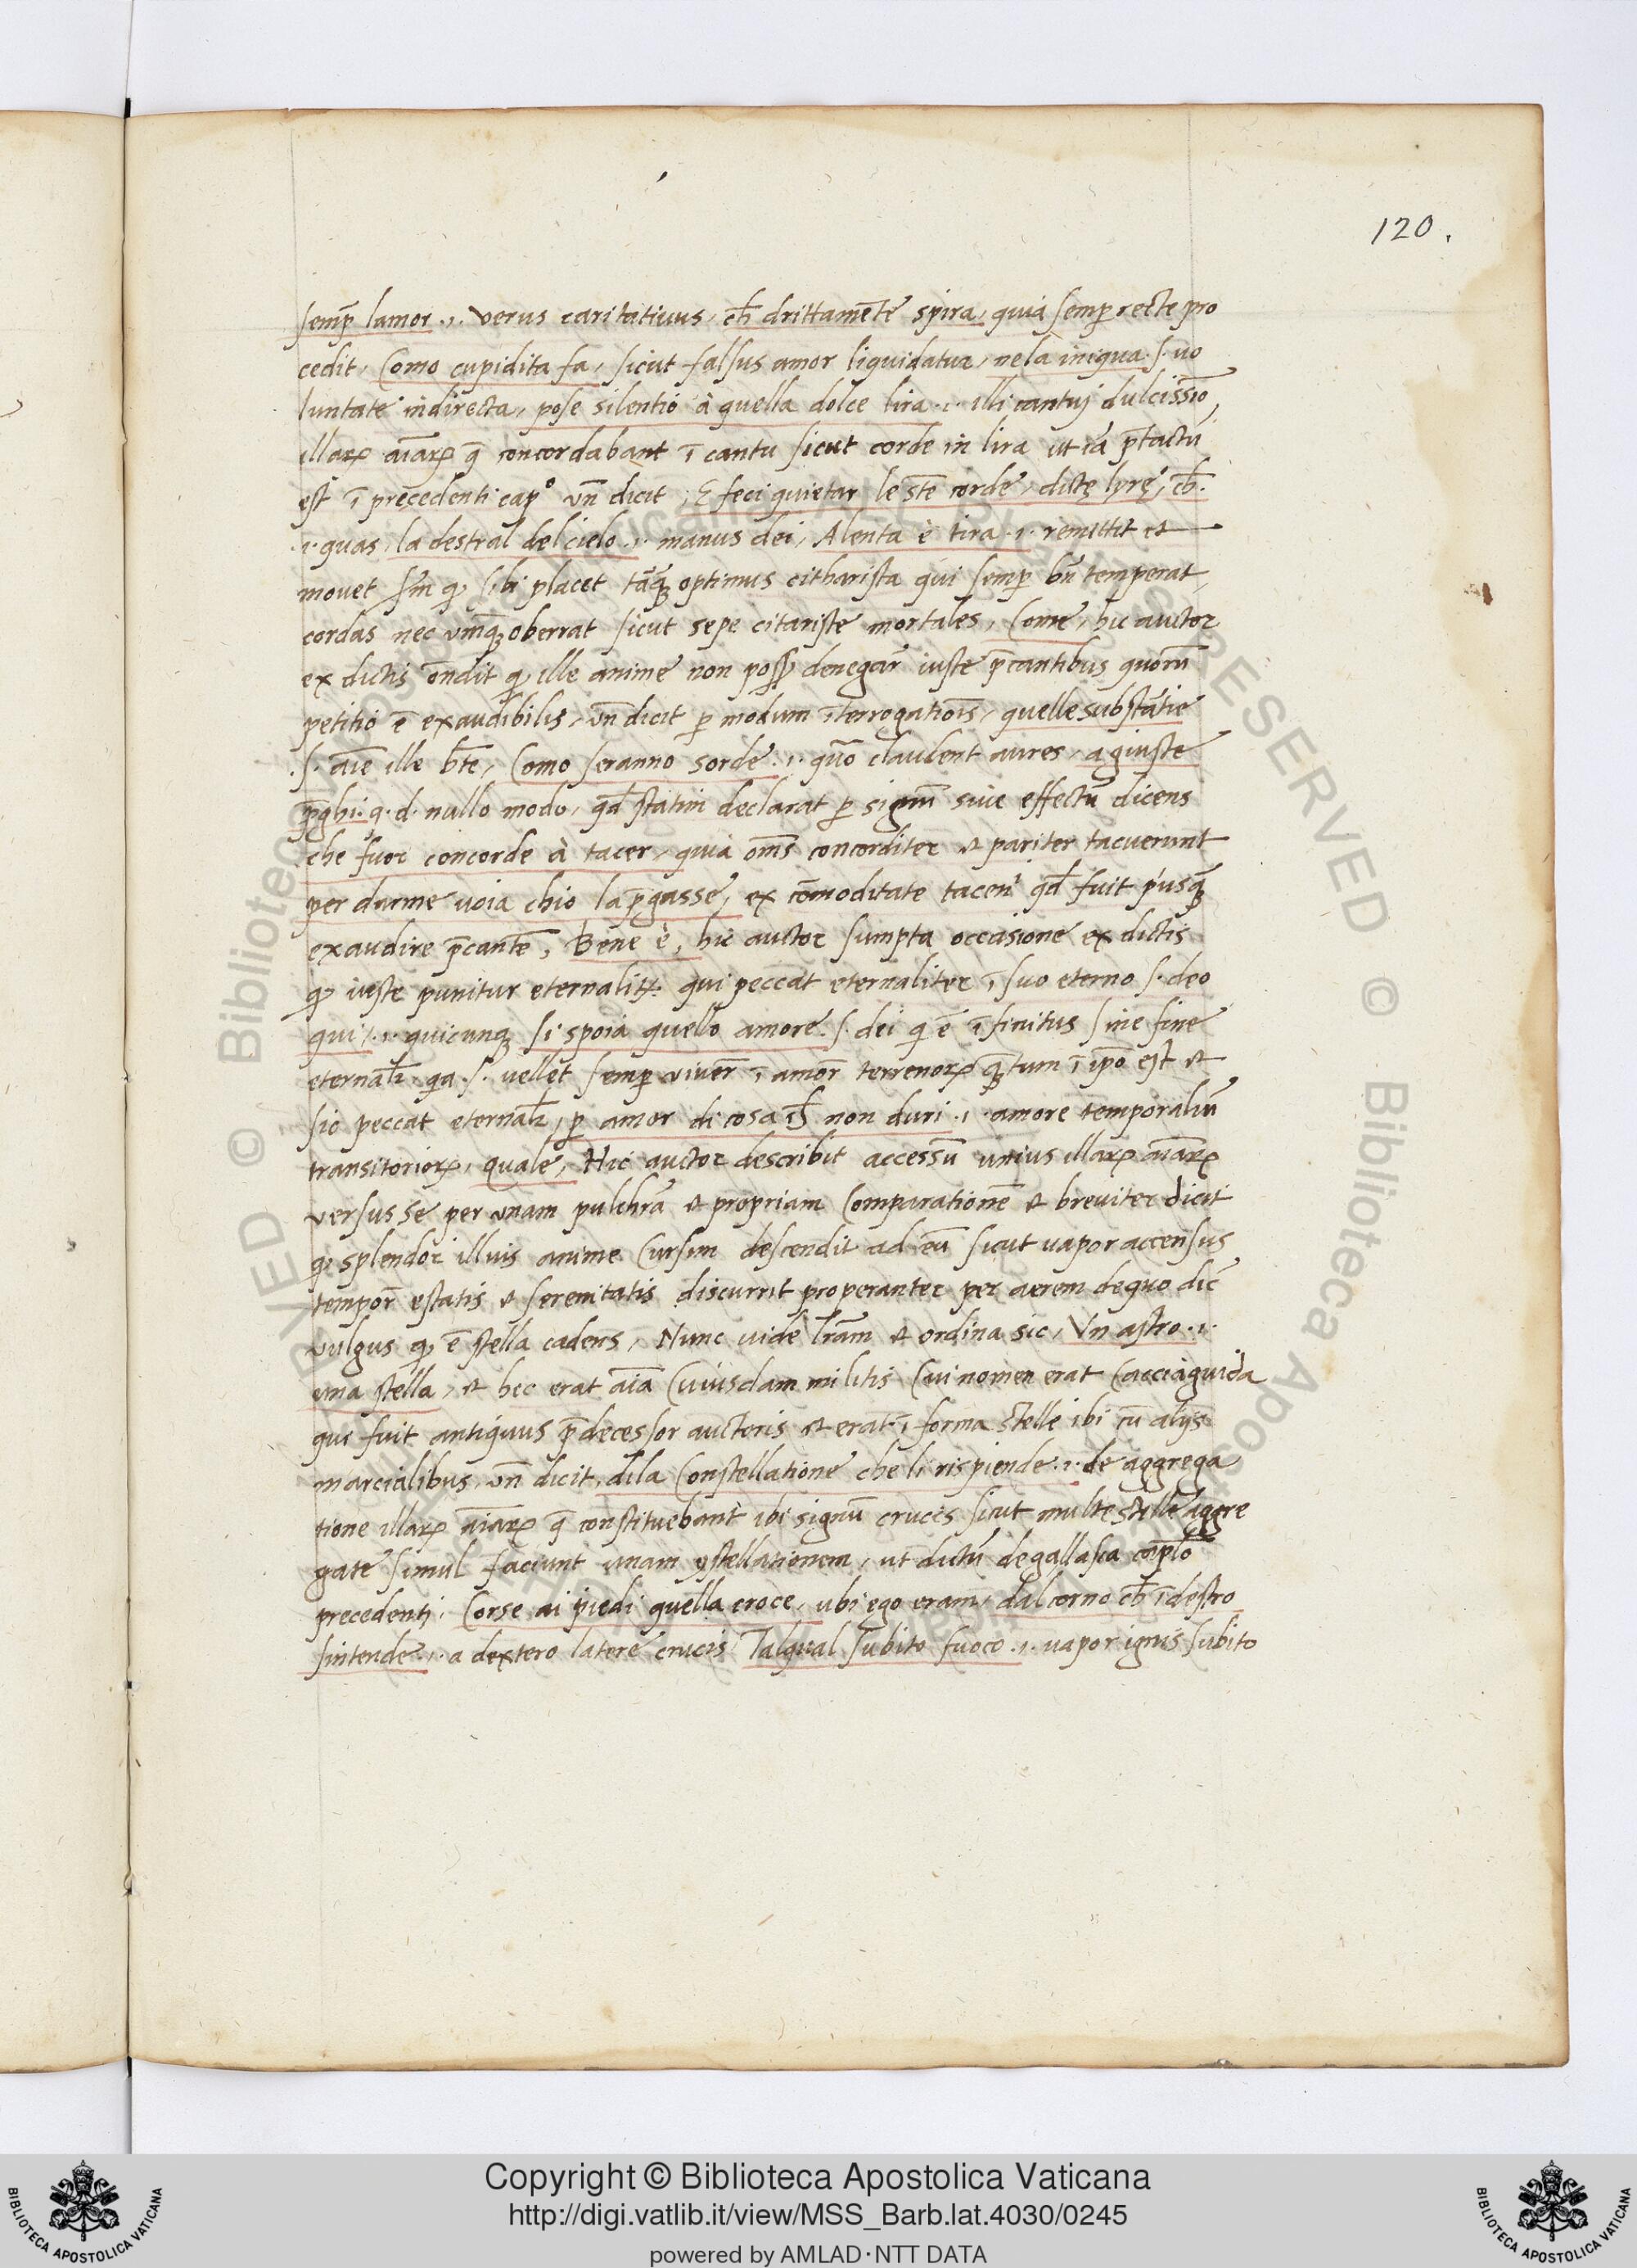 120.
semp̄ lamor .i. verus caritatiuus, ch̄ drittamēte spira, quia semper recte pro
cedit, Como cupidita fa, sicut falsus amor liquidatur, nela iniqua .s. uo
luntate indirecta, pose silentio à quella dolce lira .i. illi cantuj dulcissīo,
illaꝝ aīaꝝ q̄ concordabant ī cantu sicut corde in lira ut iā p̄tactū
est ī precedenti cap° vn̄ dicit, E feci quietar le ste corde, dictę lyrę, ch̄.
.i. quas, la destral del cielo .i. manus dei, Alenta è tira .i. remittit et
mouet sm̄ ꝙ sibi placet tāꝗꝫ optimus citharista qui semp bn̄ temperat
cordas nec vmꝗꝫ oberrat sicut sepe citariste mortales, Come, hic auctor
ex dictis on̄dit ꝙ ille anime non poss̄ denegar̄ iuste p̄cantibus quorū
petitio ē exaudibilis, vn̄ dicit ꝑ modum īterrogatiōis, quelle substātie
.s. aīe ille bt̄e, Como seranno sorde .i. quō claudent aures, a giuste
p̄ghi. q. d. nullo modo, qd̄ statim declarat ꝑ signū siue effectū dicens
che fuor concorde à tacer, quia om̄s concorditer et pariter tacuerunt
per darme uoia chio la p̄gasse, ex cōmoditate tacen̄ qd̄ fuit p'usꝗꝫ
exaudire p̄cantē, Bene è, hic auctor sumpta occasione ex dictis
ꝙ iuste punitur eternalitr̄ qui peccat eternaliter ī suo eterno .s. deo
qui .i. quicunqꝫ si spoia quello amore .s. dei q̄ ē īfinitus sine fine
eternalr̄ qa .s. vellet semp viuer̄ ī amor̄ terrenoꝝ ꝗꝫtum ī ip̄o est et
sic peccat eternalr̄, ꝑ amor di cosa ch̄ non duri .i. amore temporaliū
transitorioꝝ, quale, Hic auctor describit accessū unius illaꝝ aīaꝝ
versus se per unam pulchrā et propriam Comparationē et breuiter dicit
ꝙ splendor illius anime Cursim descendit ad eū sicut uapor accensus
tempor̄ estatis et serenitatis discurrit properanter per aerem de quo dic̄
vulgus ꝙ ē stella cadens, Nunc uide lr̄am et ordina sic, Vn astro .i.
una stella, et hec erat aīa Cuiusdam militis Cui nomen erat Cacciaguida
qui fuit antiquus p̄decessor auctoris et erat ī forma stelle ibi cū alijs
marcialibus, vn̄ dicit, dila Constellatione che li rispiende .i. de aggrega
tione illaꝝ aīaꝝ q̄ constituebant ibi signū crucis sicut multe stelle aggre
gate simul faciunt unam ꝯstellationem, ut dictū de gallasia cāplo
precedenti. Corse ai piedi quella croce, ubi ego eram, dal corno ch̄ ī destro
sintende .i. a dextero latere crucis Talqual subito fuoco .i. uapor ignis subito
Copyright © Biblioteca Apostolica Vaticana
http://digi.vatlib.it/view/MSS_Barb.lat.4030/0245
powered by AMLAD·NTT DATA
BIBLIOTECA APOSTOLICA VATICANA
BIBLIOTECA APOSTOLICA VATICANA